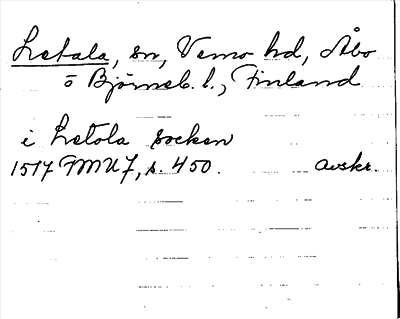 Letala, sn, Vemo hd, Åbo
o Björneb. l., Finland
i Letola socken
1517 FMU 7, s. 450. avskr.